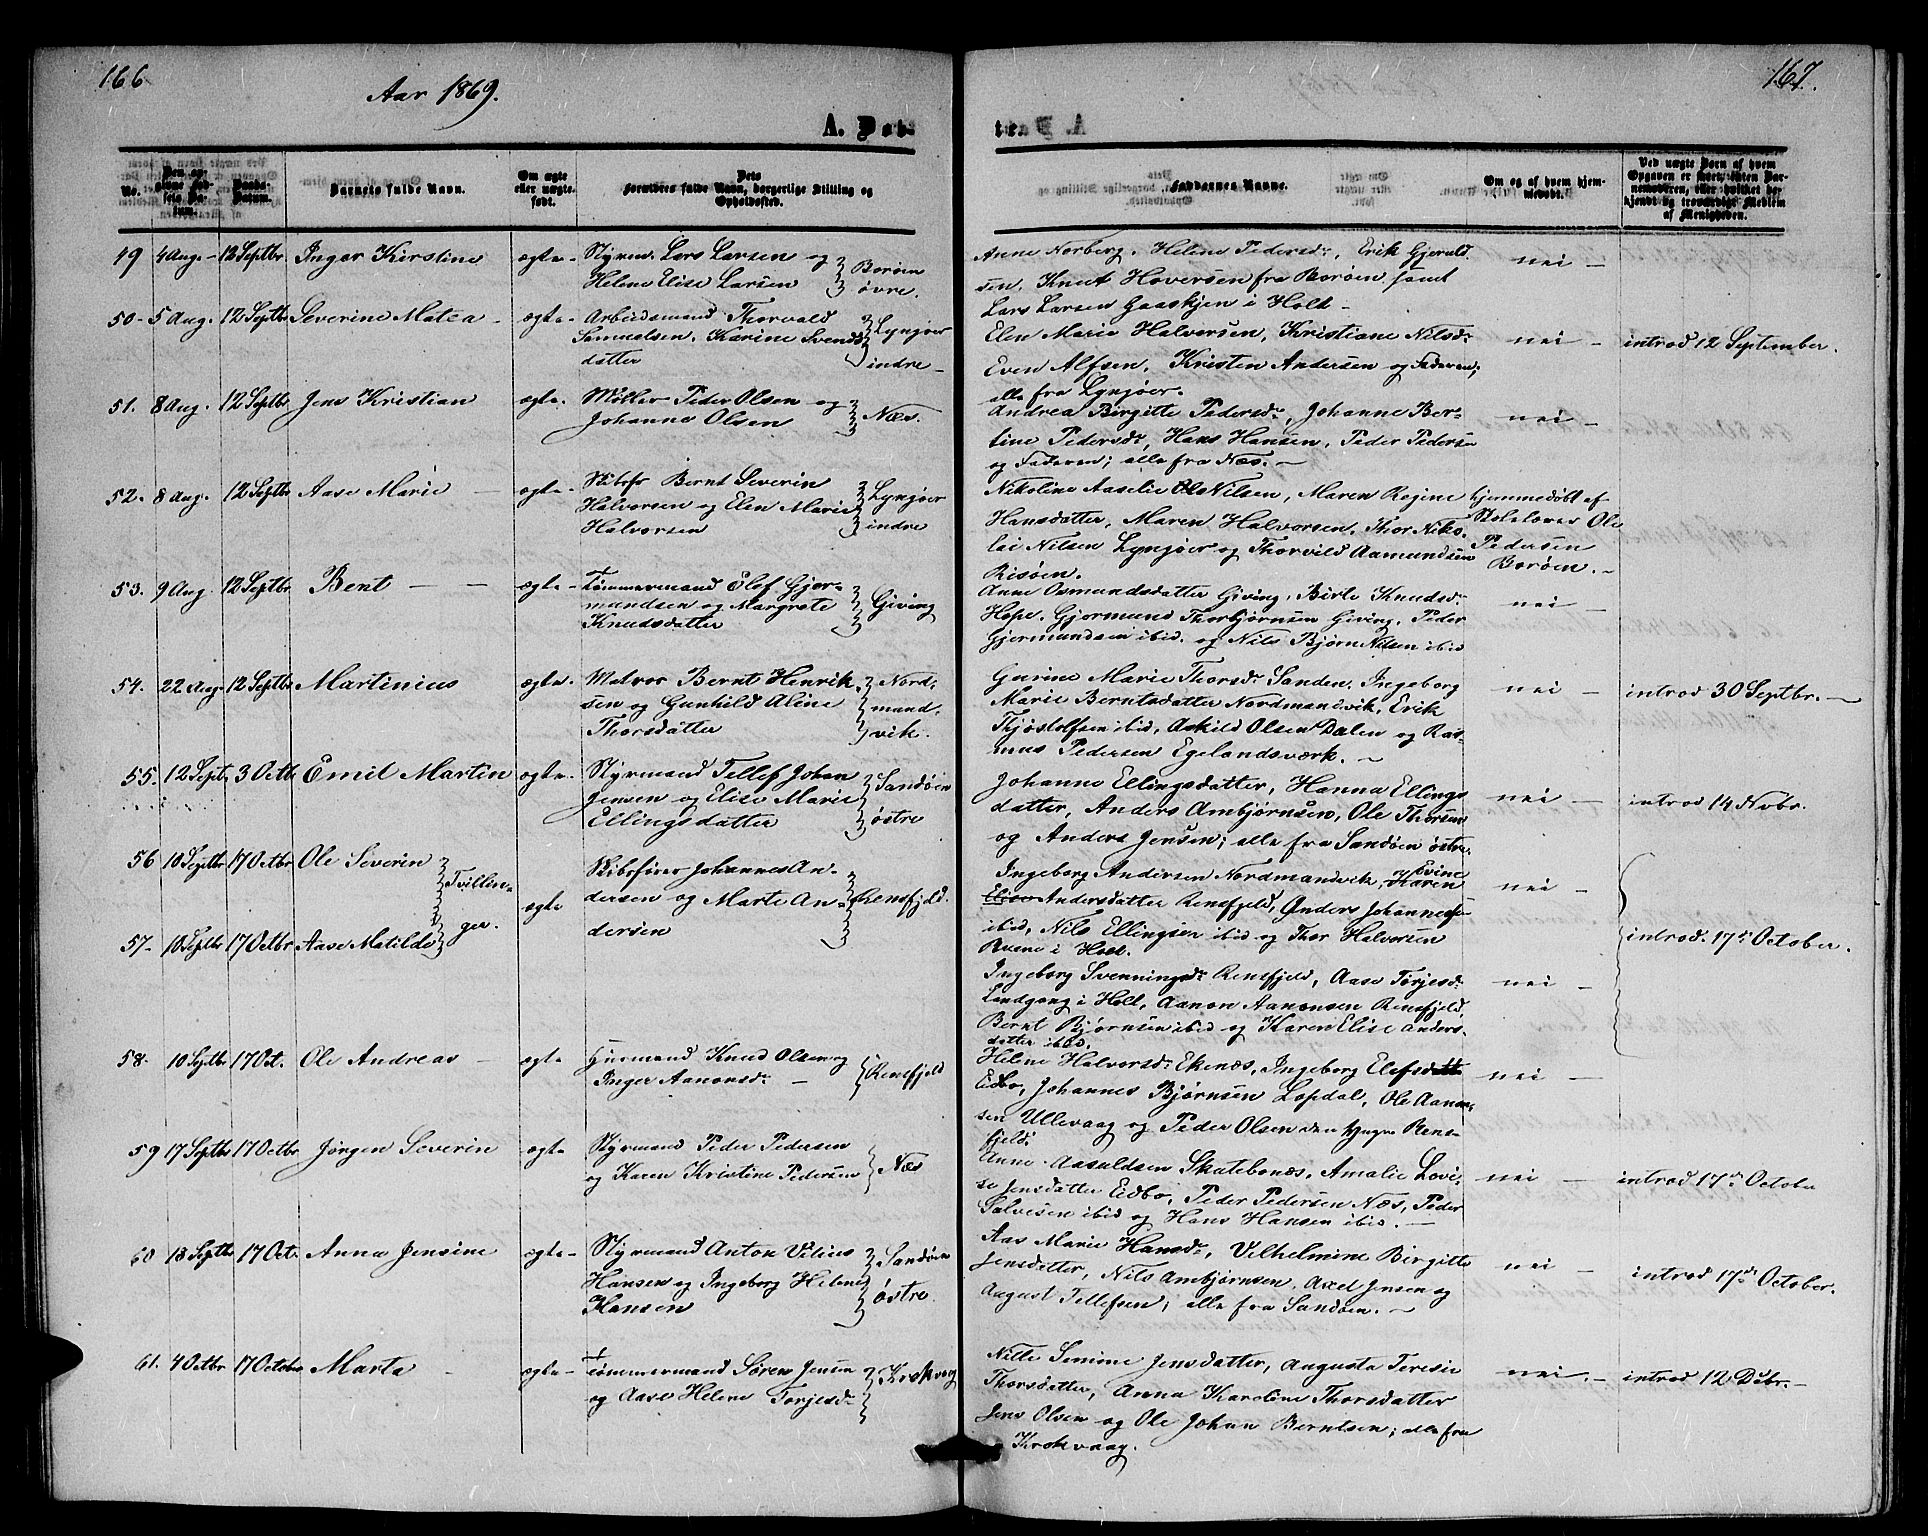 166
Aar 1869.
A. Døb-
No.
Den angivne Fødsels Datum.
Daabs-Datum.
Barnets fulde Navn.
Om ægte eller uægte født.
Dets Forældres fulde Navn, borgerlige Stilling og Opholdssted.
49 4 Aug. 12 Septbr Inger Kirstine ægte Styrm. Lars Larsen og
Helene Elise Larsen
Borøen
øvre.
50 5 Aug. 12 Septbr Severine Matea ægte Arbeidsmand Thorvald
Samuelsen, Karine Svends
datter
Lyngøer
indre
51. 8 Aug. 12 Septbr Jens Kristian ægte Møller Peder Olsen og
Johanne Olsen
Næs.
52. 8 Aug. 12 Septbr Aase Marie ægte Skibsf. Bernt Severin
Halvorsen og Elen Marie
Halvorsen
Lyngøer
indre
53. 9 Aug. 12 Septbr Bent ægte Tømmermand Elef Gjer-
mundsen og Margrete
Knudsdatter
Giving
54. 22 Aug. 12 Septbr Martinius ægte Matros Bernt Henrik
sen og Gunhild Aline
Thorsdatter
Nord-
mand-
vik.
55. 12 Sept. 3 Octb Emil Martin ægte Styrmand Tellef Johan
Jensen og Elise Marie
Ellingsdatter
Sandøen
østre
56 10 Septbr 17 Octbr Ole Severin
57 10 Septbr 17 Octbr Aase Matilde
Tvillin-
ger.
ægte
Skibsfører Johannes An-
dersen og Marte An-
dersen
Rensfjeld.
58. 10 Septbr. 17 Oct. Ole Andreas ægte Huusmand Knud Olsen og
Inger Aanonsdr.
Rensfjeld
59 17 Septbr 17 Octbr Jørgen Severin ægte Styrmand Peder Pedersen
og Karen Kristine Pedersen
Næs
60 18 Septbr 17 Oct. Anna Jensine ægte Styrmand Anton Vilius
Hansen og Ingeborg Helene
Hansen
Sandøen
østre
61. 4 Octbr 17 Octobr Marta ægte Tømmermand Søren Jensen
og Aase Helene Torjesdr.
Krokvaag
167.
te.
Faddernes Navne.
Om og af hvem hjemmedøbt.
Ved uægte Børn af hvem Opgaven er skeet, enten Barnemoderen, eller hvilket bekjendt og troværdigt Medlem af Menigheden.
Anne Norberg, Helene Pedersdr., Erik Gjeruld
sen, Knut Hoversen fra Borøen samt
Lars Larsen Gaaskjen i Holt
nei
Elen Marie Halvorsen, Kristiane Nilsdr.
Even Alfsen, Kristen Andersen og Faderen;
alle fra Lyngøer.
nei
introd 12 September.
Andrea Birgitte Pedersdr., Johanne Ber-
tine Pedersdr., Hans Hansen, Peder Pedersen
og Faderen; alle fra Næs.
nei
Nikoline Aaselie Nilsen, Maren Regine
Hansdatter, Maren Halvorsen, Thor Niko-
lai Nilsen Lyngøer og Thorvild Aamundsen
Risøen.
hjemmedøbt af
Skolelærer Ole
Pedersen
Borøen.
Anne Osmundsdatter Giving, Birte Knudsdr.
Hope, Gjermund Thorbjørnsen Giving, Peder
Gjermundsen ibid. og Nils Bjørn Nilsen ibid
nei
Gurine Marie Thorsdr. Sanden, Ingeborg
Marie Berntsdatter Nordmandvik, Erik
Thjøstolfsen ibid, Askild Olsen Dalen og Ras-
mus Pedersen Egelandsværk.
nei
introd 30 Septbr.
Johanne Ellingsdatter, Hanna Ellings
datter, Anders Ambjørnsen, Ole Thorsen
og Anders Jensen; alle fra Sandøen østre.
nei
introd 14 Novbr.
Ingeborg Andersen Nordmandvik, Karen Evine
Elise Andersdatter Rensfjeld, Anders Johannesen
ibid, Nils Ellingsen ibid og Thor Halvorsen
i Holt.
nei
introd. 17de October.
Ingeborg Svenningsdr. Rensfjeld, Aase Torjesdr.
Landgang i Holt, Aanon Aanonsen Rensfjeld,
Bernt Bjørnsen ibid og Karen Elise Anders-
datter ibid.
nei
Helene Halvorsdr. Ekenæs, Ingeborg Elefsdatter
Eidbo, Johannes Bjørnsen Lopdal, Ole Aanon-
sen Ullevaag og Peder Olsen den yngre Rens-
fjeld.
nei
Anne Aasuldsen Skatebonæs, Amalie Lovi-
se Jensdatter Eidbo, Peder Pedersen Næs, Peder
Salvesen ibid og Hans Hansen ibid.
nei
introd 17de October
Aas Marie Hansdr., Vilhelmine Birgitte
Jensdatter, Nils Ambjørnsen, Axel Jensen og
August Tellefsen; alle fra Sandøen.
nei
introd 17de October.
Nille Simine Jensdatter, Augusta Teresie
Thorsdatter, Anna Karoline Thorsdatter
Jens Olsen og Ole Johan Berntsen; alle fra
Krokvaag.
nei.
introd 12 Debr.